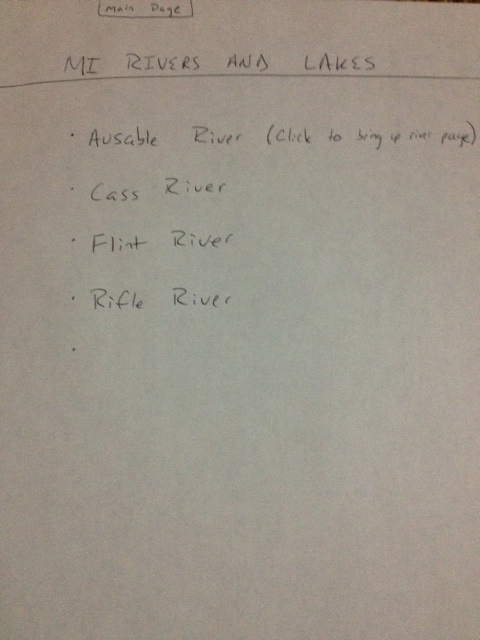 Main Page
MI RIVERS AND LAKES
· Ausable River (Click to bring up river page)
· Cass River
· Flint River
· Rifle River
·